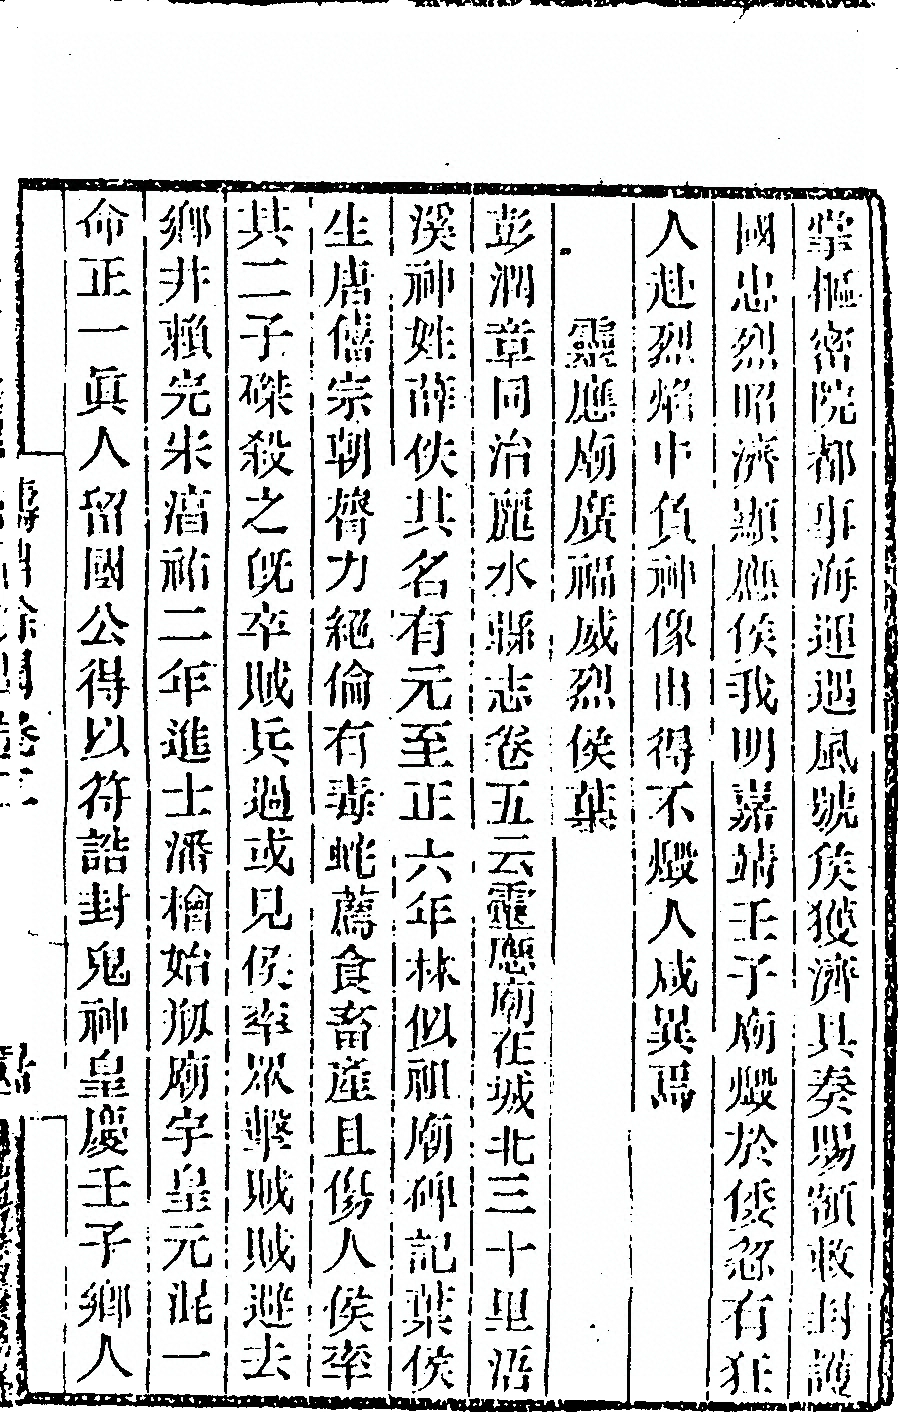 掌樞密院都事海運遇風號侯獲濟具奏賜額收封護
國忠烈昭濟顯應侯我明嘉靖壬子廟燬於倭忽有狂
人赴烈焰中負神像出得不燬人咸異焉
靈應廟廣福威烈侯葉
彭潤章同治麗水縣志卷五云靈應廟在城北三十里浯
溪神姓薛佚其名有元至正六年林似祖廟碑記葉侯
生唐僖宗朝膂力絕倫有毒蛇薦食畜產且傷人侯率
其二子磔殺之旣卒賊兵過或見侯率眾擊賊賊避去
鄉井賴完朱濇祐二年進士潘檜始剏廟宇皇元混一
命正一眞人留國公得以符誥封鬼神皇慶壬子鄉人